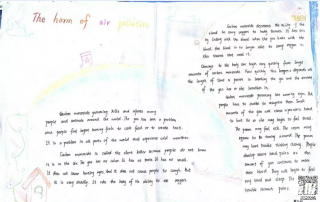 The harm of air pollution
Carbon monoxide poisoning kills and injures many
people and animals around the world. The gas has been a problem
since people first began burning fuels to cook food or to create heat.
It is a problem in all parts of the world and experience cold weather.
Carbon monoxide is called the silent killer because people do not know
is in the air. The gas has no color. It has no taste. It has no smell.
It does not cause burning eyes. And it does not cause people to cough. But
it is very deadly. It robs the body of its ability to use oxygen.
Carbon monoxide decreases the ability of the
blood to carry oxygen to body tissues. It does this
by linking with the blood. When the gas links with the
blood, the blood is no longer able to carry oxygen to
the tissues that need it.
Damage to the body can begin very quickly from large
amounts of carbon monoxide. How quickly this happens depends on
the length of time a person is breathing the gas and the amount
of the gas he or she breathes in.
Carbon monoxide poisoning has warning signs. But
people have to be awake to recognize them. Small
amounts of the gas will cause a person's head
to hurt. He or she may begin to feel tired.
The person may feel sick. The room may
appear to be turning around. The person
may have trouble thinking clearly. People
develop severe head pains as the
amount of gas continues to enter
their blood. They will begin to feel
very tired and sleepy. They may have
terrible stomach pains.